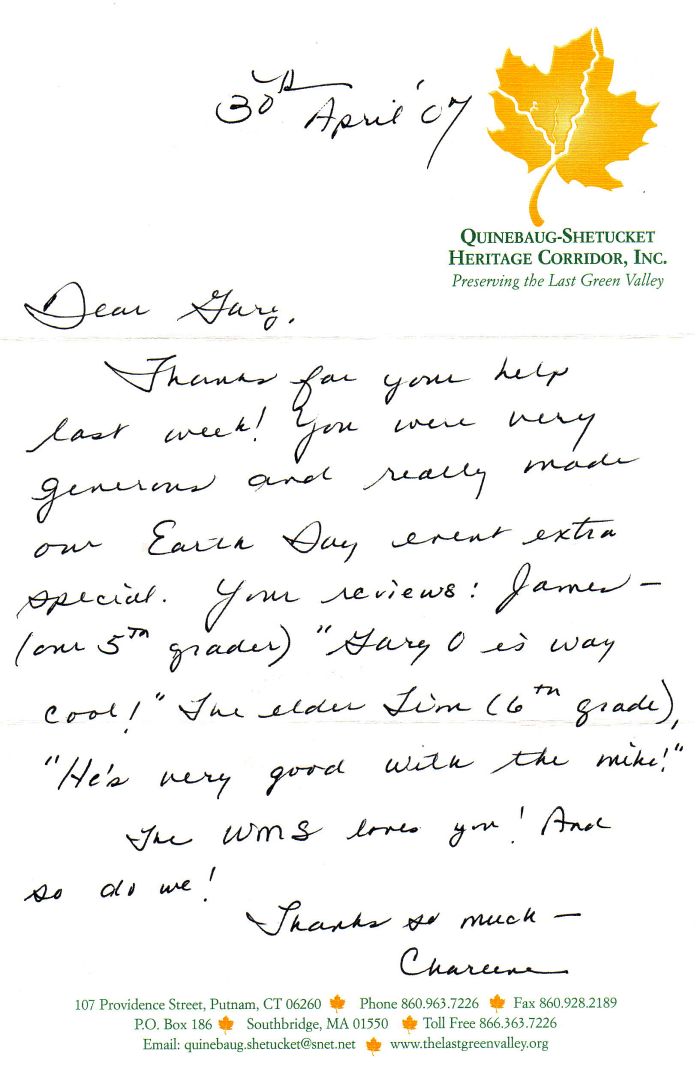 30th April '07
QUINEBAUG-SHETUCKET
HERITAGE CORRIDOR, INC.
Preserving the Last Green Valley
Dear Gary,
Thanks for your help
last week! You were very
generous and really made
our Earth Day event extra
special. Your reviews: James –
(our 5th grader) "Gary O is way
cool!" The elder Tim (6th grade),
"He's very good with the mike!"
The WMS loves you! And
so do we!
Thanks so much –
Charlene
107 Providence Street, Putnam, CT 06260 Phone 860.963.7226 Fax 860.928.2189
P.O. Box 186 Southbridge, MA 01550 Toll Free 866.363.7226
Email: quinebaug.shetucket@snet.net www.thelastgreenvalley.org